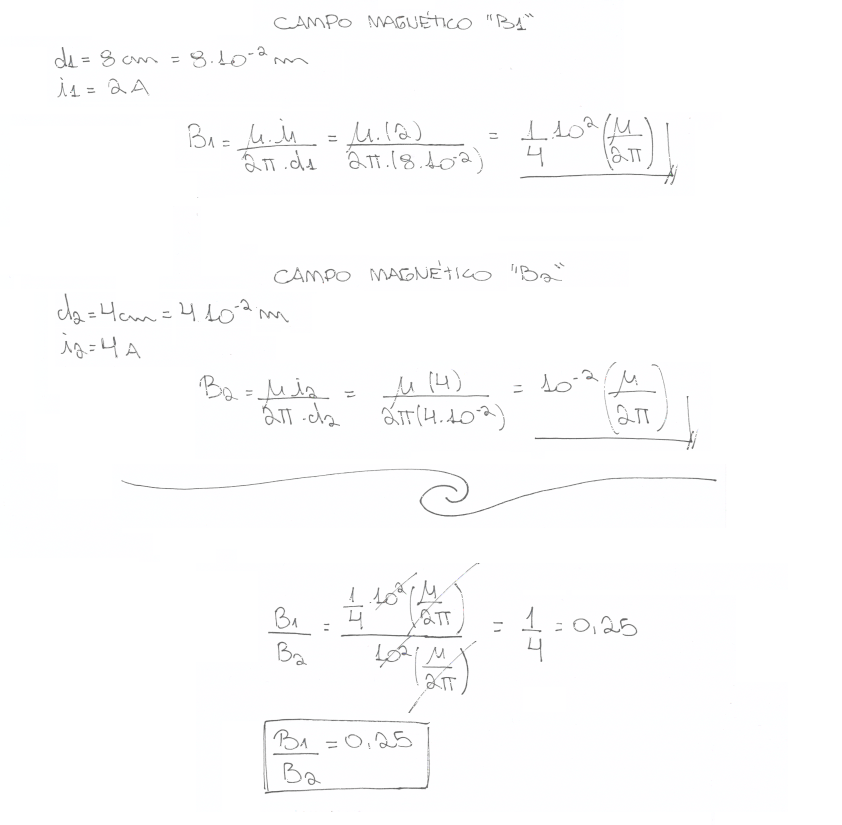 CAMPO MAGNÉTICO "B1"
d1 = 8 cm = 8.10^-2 m
i1 = 2A
B1 = μ.i1/2π.d1 = μ.(2)/2π.(8.10^-2) = 1/4 .10^2 (μ/2π)
CAMPO MAGNÉTICO "B2"
d2 = 4cm = 4.10^-2 m
i2 = 4A
B2 = μ i2/2π.d2 = μ (4)/2π(4.10^-2) = 10^-2 (μ/2π)
B1/B2 = 1/4 .10^2 (μ/2π)/10^2 (μ/2π) = 1/4 = 0,25
B1/B2 = 0,25